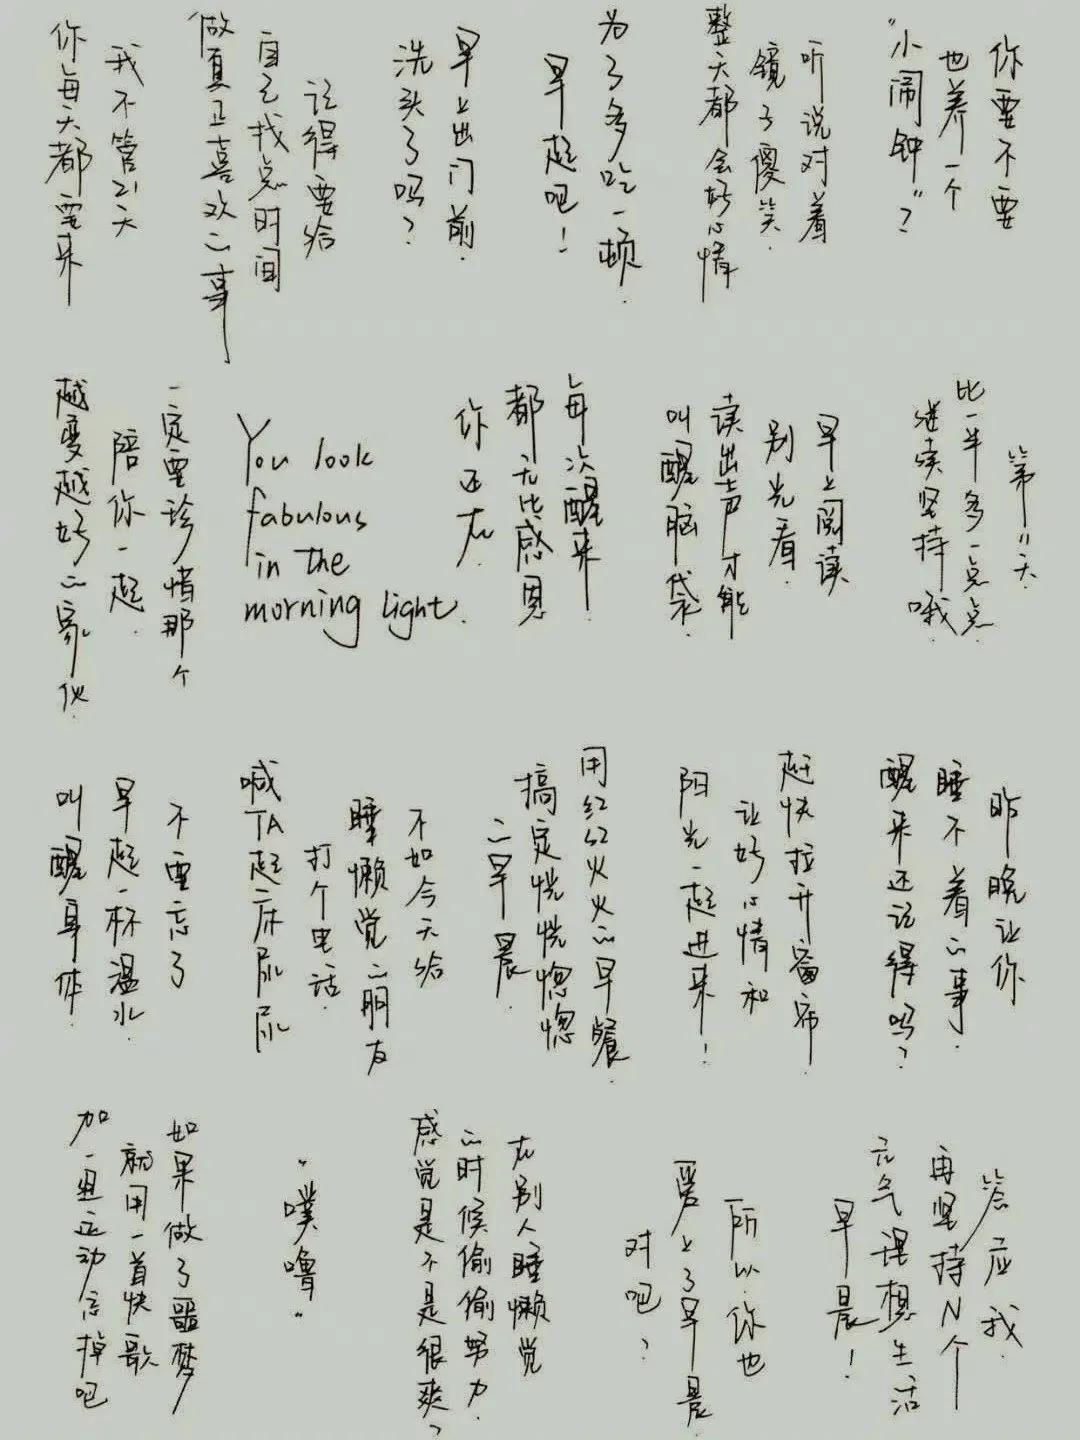 你要不要
也养一个
“小闹钟”？
听说对着
镜子傻笑
整天都会好心情
为了多吃一顿.
早起吧！
早上出门前.
洗头了吗？
记得要给
自己找点时间
做真正喜欢的事
我不管21天
你每天都要来
第11天.
比一半多一点点
继续坚持哦.
早上阅读
别光看.
读出声才能
叫醒脑袋.
每次醒来
都无比感恩
你还在.
You look
fabulous
in the
morning light.
一定要珍惜那个
陪你一起.
越变越好的家伙.
昨晚让你
睡不着的事.
醒来还记得吗？
赶快拉开窗帘.
让好心情和
阳光一起进来！
用红红火火的早餐.
搞定恍恍惚惚
的早晨.
不如今天给
睡懒觉的朋友
打个电话.
喊TA起床尿尿
不要忘了
早起一杯温水.
叫醒身体.
答应我.
再坚持N个
元气理想生活
早晨！
所以你也
爱上了早晨
对吧？
在别人睡懒觉
的时候偷偷努力.
感觉是不是很爽？
“噗噜”
如果做了噩梦
就用一首快歌
加一组运动忘掉吧